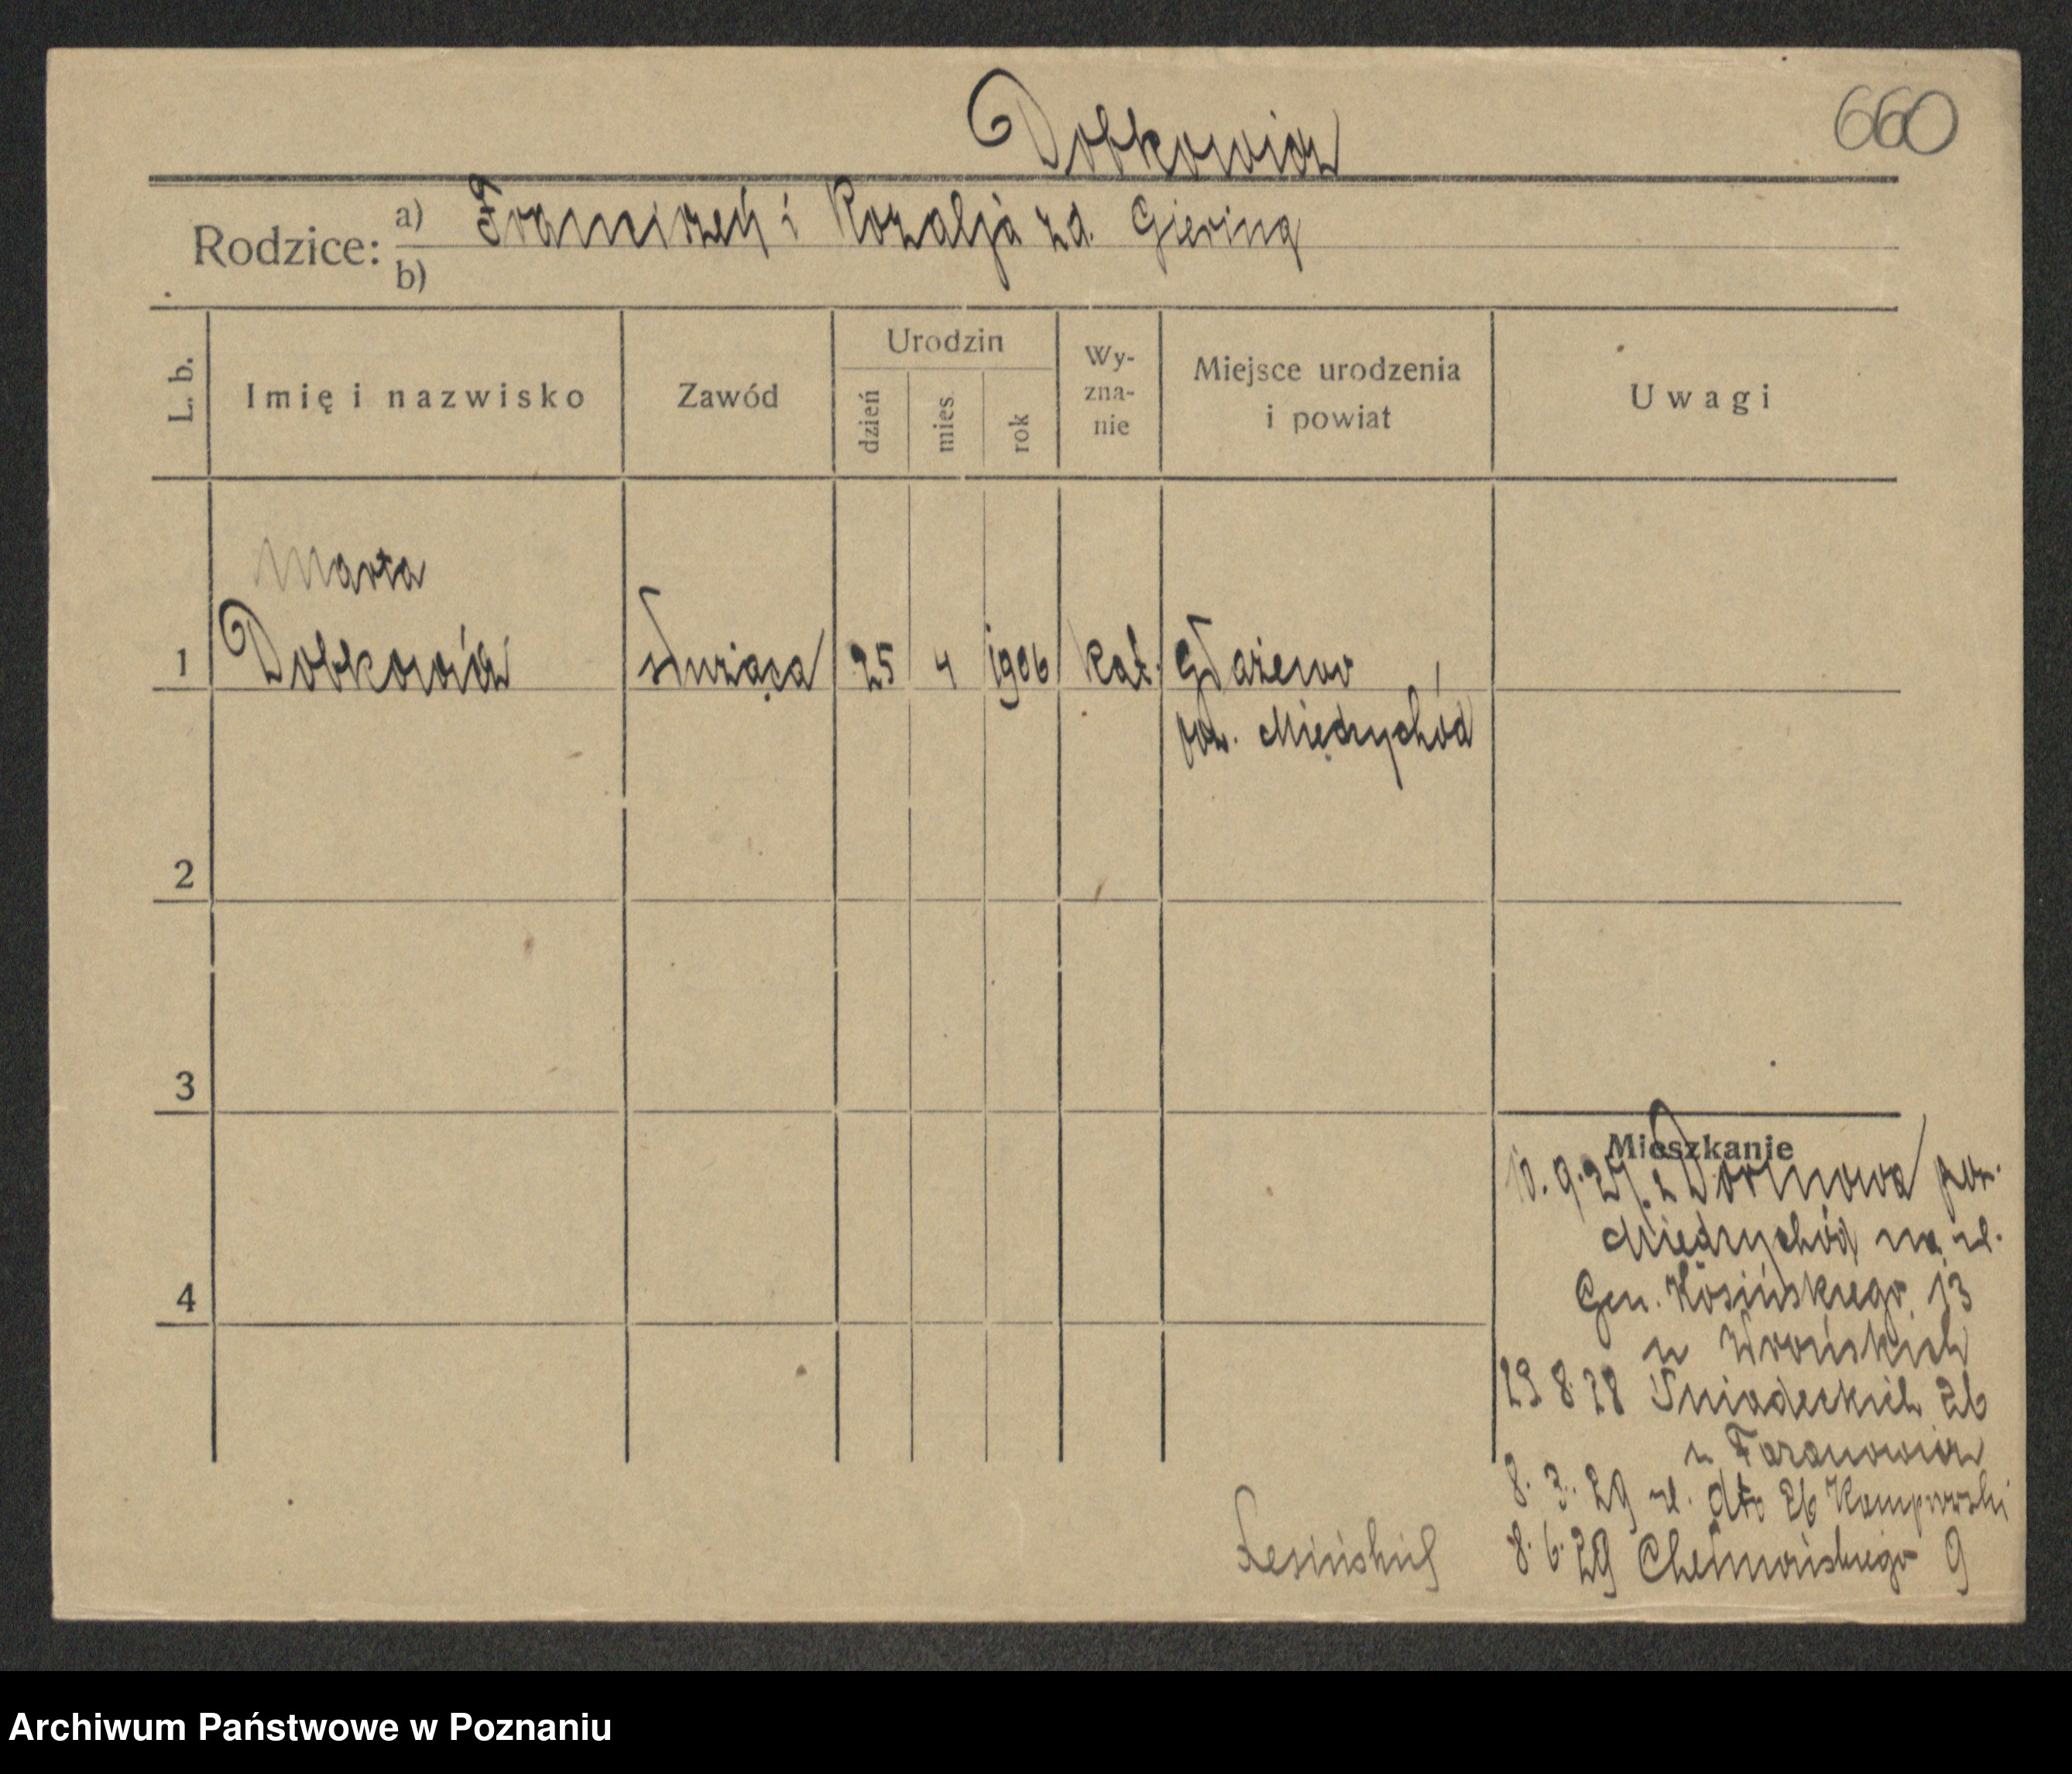 Dobkowicz
660
Rodzice: a) Franciszek i Rozalja zd. Giering
b)
L. b.
Imię i nazwisko
Zawód
Urodzin
dzień
mies.
rok
Wy-
zna-
nie
Miejsce urodzenia
i powiat
Uwagi
Marta
1 Dobkowicz służąca 25 4 1906 kat.
pow. Międzychód
2
3
4
Mieszkanie
10. 9. 27. z Dormowa pow.
Międzychód na ul.
Gen. Kosińskiego 13
u Wrońskich
29 8 28 Śniadeckich 26
u
8. 3. 29 ul. dto 26
8. 6. 29 Chełmońskiego 9
Lesińskich
Archiwum Państwowe w Poznaniu